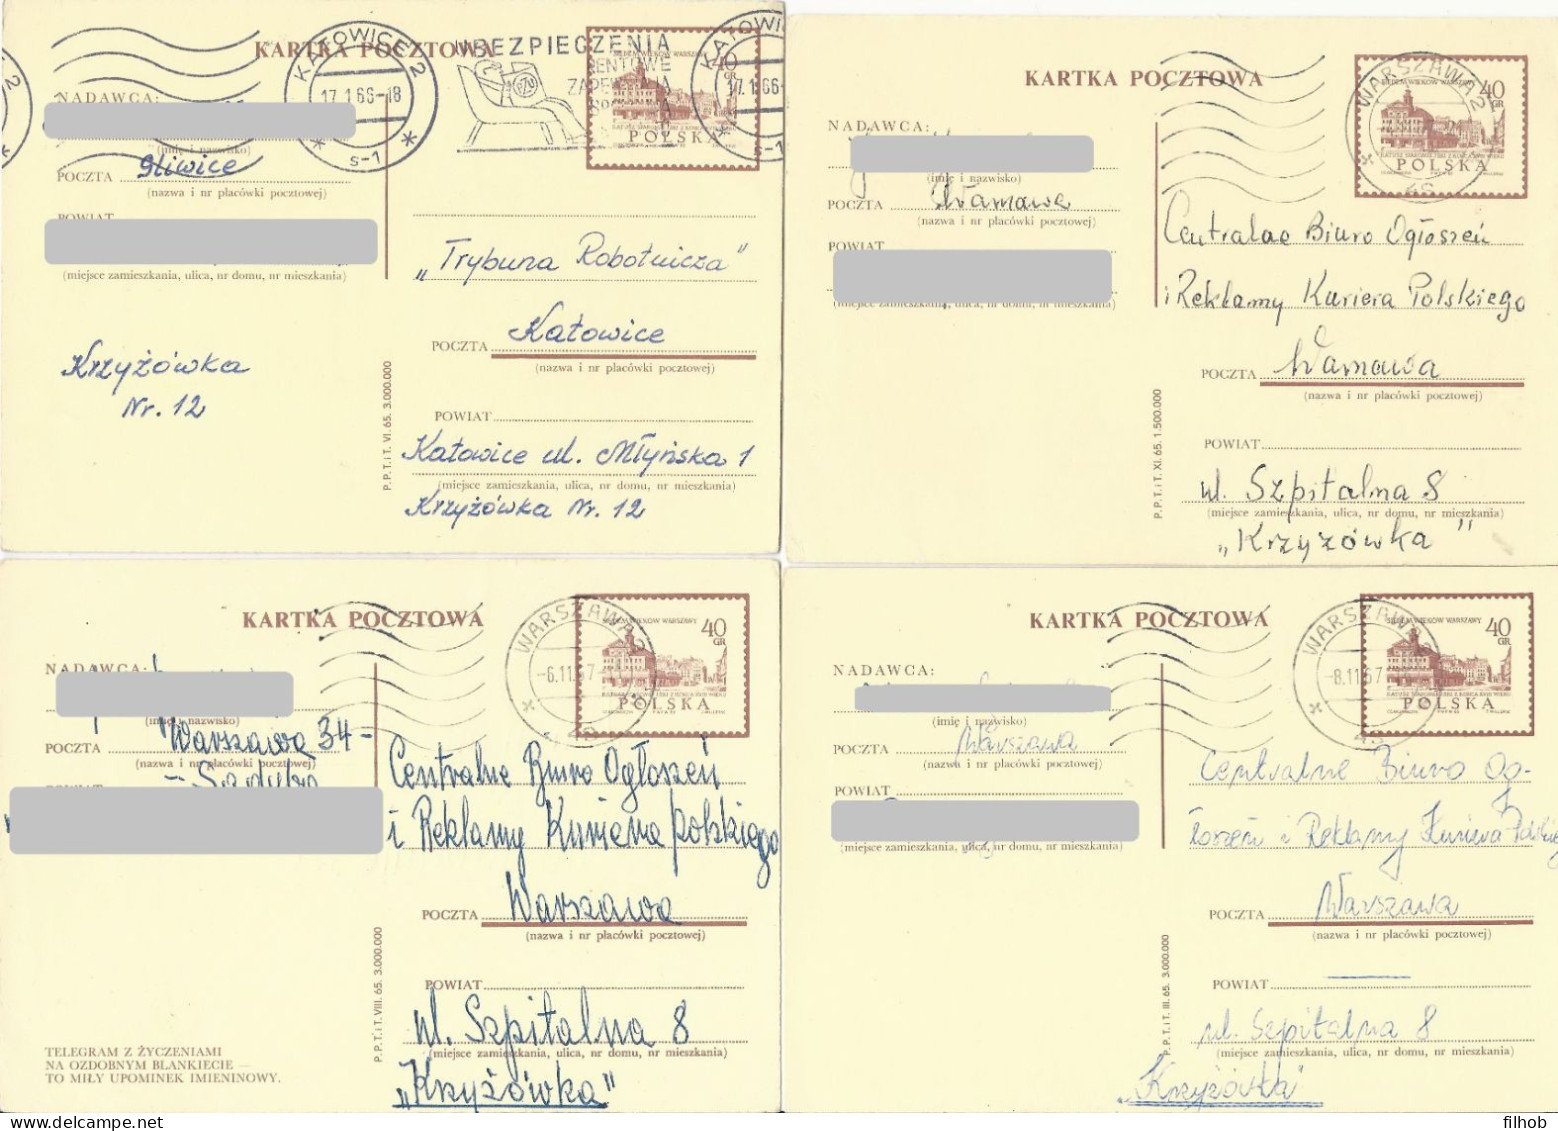 KARTKA POCZTOWA
KATOWICE 2
17.1.66-18
s-1
UBEZPIECZENIA
RENTOWE
PZU
SIEDEM WIEKÓW WARSZAWY
40
GR
POLSKA
KATOWIC
17.1.66-
s-1
NADAWCA:
(imię i nazwisko)
POCZTA Gliwice
(nazwa i nr placówki pocztowej)
POWIAT
(miejsce zamieszkania, ulica, nr domu, nr mieszkania)
Krzyżówka
Nr. 12
„Trybuna Robotnicza"
POCZTA Katowice
(nazwa i nr placówki pocztowej)
POWIAT
Katowice ul. Młyńska 1
(miejsce zamieszkania, ulica, nr domu, nr mieszkania)
Krzyżówka Nr. 12
P.P.T. i T. VI. 65. 3.000.000
KARTKA POCZTOWA
WARSZAWA 2
40
GR
POLSKA
NADAWCA:
(imię i nazwisko)
POCZTA Warszawa
(nazwa i nr placówki pocztowej)
POWIAT
(miejsce zamieszkania, ulica, nr domu, nr mieszkania)
Centralne Biuro Ogłoszeń
i Reklamy Kuriera Polskiego
POCZTA Warszawa
(nazwa i nr placówki pocztowej)
POWIAT
ul. Szpitalna 8
(miejsce zamieszkania, ulica, nr domu, nr mieszkania)
„Krzyżówka"
P.P.T. i T. XI. 65. 1.500.000
KARTKA POCZTOWA
WARSZAWA
-6.11.67
SIEDEM WIEKÓW WARSZAWY
40
GR
POLSKA
NADAWCA:
(imię i nazwisko)
Warszawa 34-
POCZTA
(nazwa i nr placówki pocztowej)
Centralne Biuro Ogłoszeń
i Reklamy Kuriera Polskiego
POCZTA Warszawa
(nazwa i nr placówki pocztowej)
POWIAT
ul. Szpitalna 8
(miejsce zamieszkania, ulica, nr domu, nr mieszkania)
„Krzyżówka"
P.P.T. i T. VIII. 65. 3.000.000
TELEGRAM Z ŻYCZENIAMI
NA OZDOBNYM BLANKIECIE —
TO MIŁY UPOMINEK IMIENINOWY.
KARTKA POCZTOWA
WARSZAWA
-8.11.67
SIEDEM WIEKÓW WARSZAWY
40
GR
POLSKA
NADAWCA:
(imię i nazwisko)
Warszawa
POCZTA
(nazwa i nr placówki pocztowej)
POWIAT
(miejsce zamieszkania, ulica, nr domu, nr mieszkania)
Centralne Biuro Og-
łoszeń i Reklamy Kuriera Polskieg
POCZTA Warszawa
(nazwa i nr placówki pocztowej)
POWIAT
ul. Szpitalna 8
(miejsce zamieszkania, ulica, nr domu, nr mieszkania)
„Krzyżówka"
P.P.T. i T. III. 65. 3.000.000
filhob